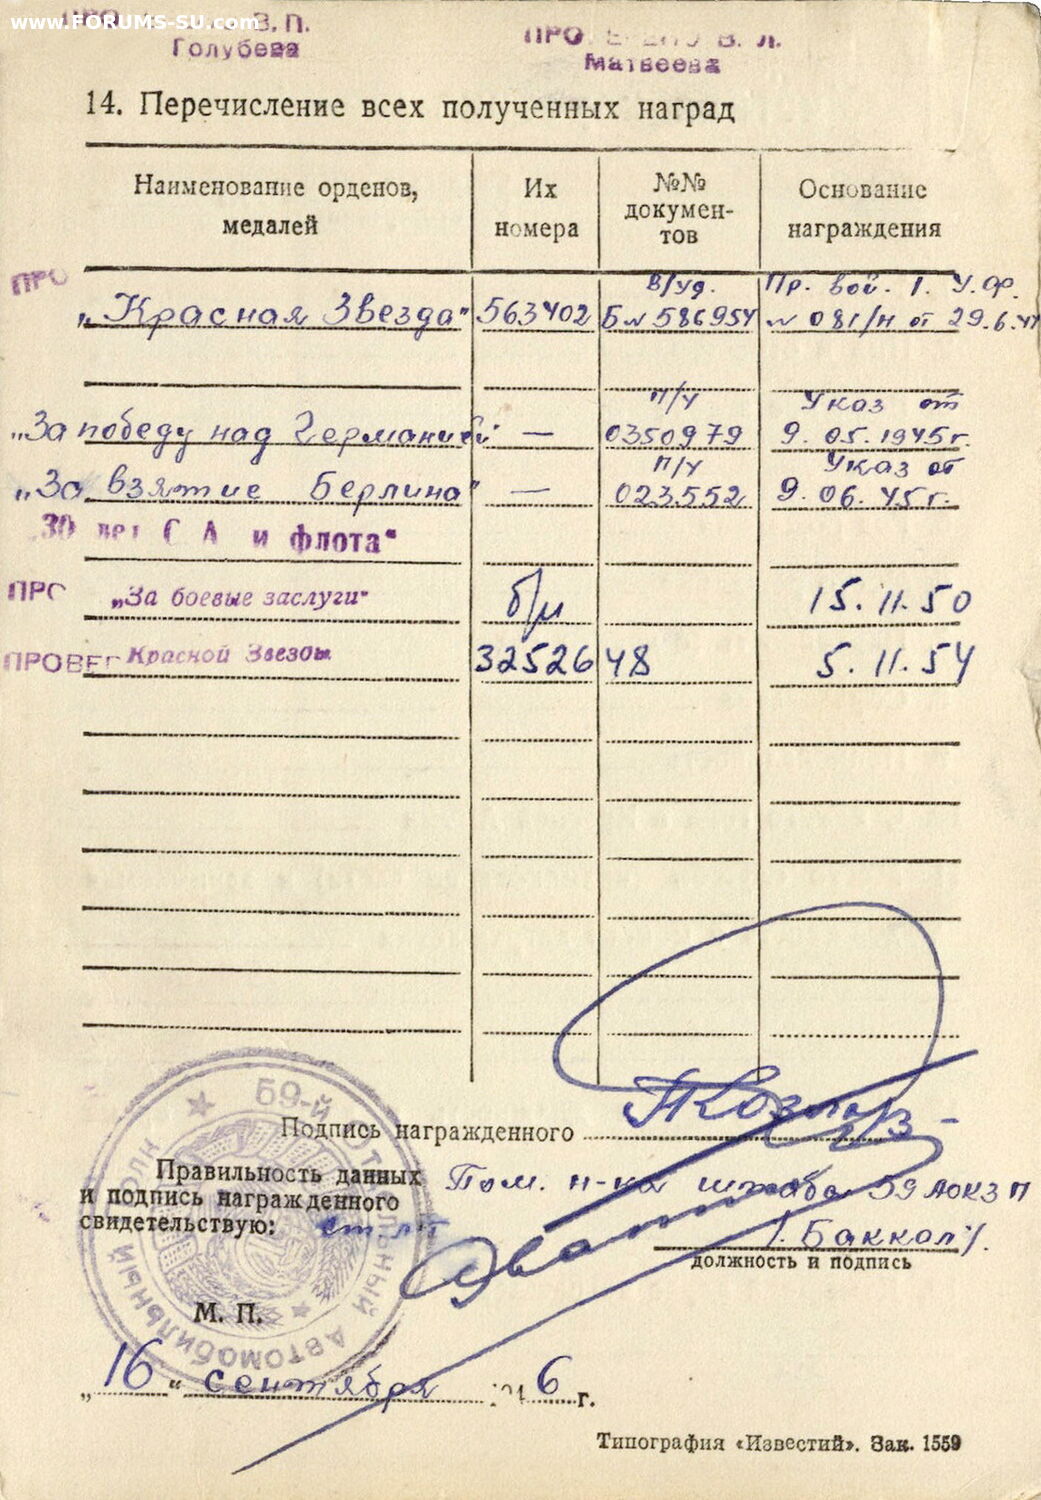 www.FORUMS-SU.com
В. П.
Голубева
В. Л.
Матвеева
14. Перечисление всех полученных наград
Наименование орденов, медалей
Их номера
№№ документов
Основание награждения
ПРО
„Красная Звезда" 563402 В/уд. Б № 586954 Пр. вой. 1. У.Фр. № 081/н от 29.6.44
„За победу над Германией" — п/у 0350979 Указ от 9.05.1945г.
„За взятие Берлина" — п/у 023552 Указ от 9.06.45г.
„30 лет С А и флота"
ПРО „За боевые заслуги" б/н 15.11.50
ПРОВЕР Красной Звезды 3252648 5.11.54
59-й ОТДЕЛЬНЫЙ АВТОМОБИЛЬНЫЙ ПОЛК
Подпись награжденного
Правильность данных
и подпись награжденного
свидетельствую:
Пом. н-ка штаба 59
должность и подпись
М. П.
„16" сентября 6 г.
Типография «Известий». Зак. 1559